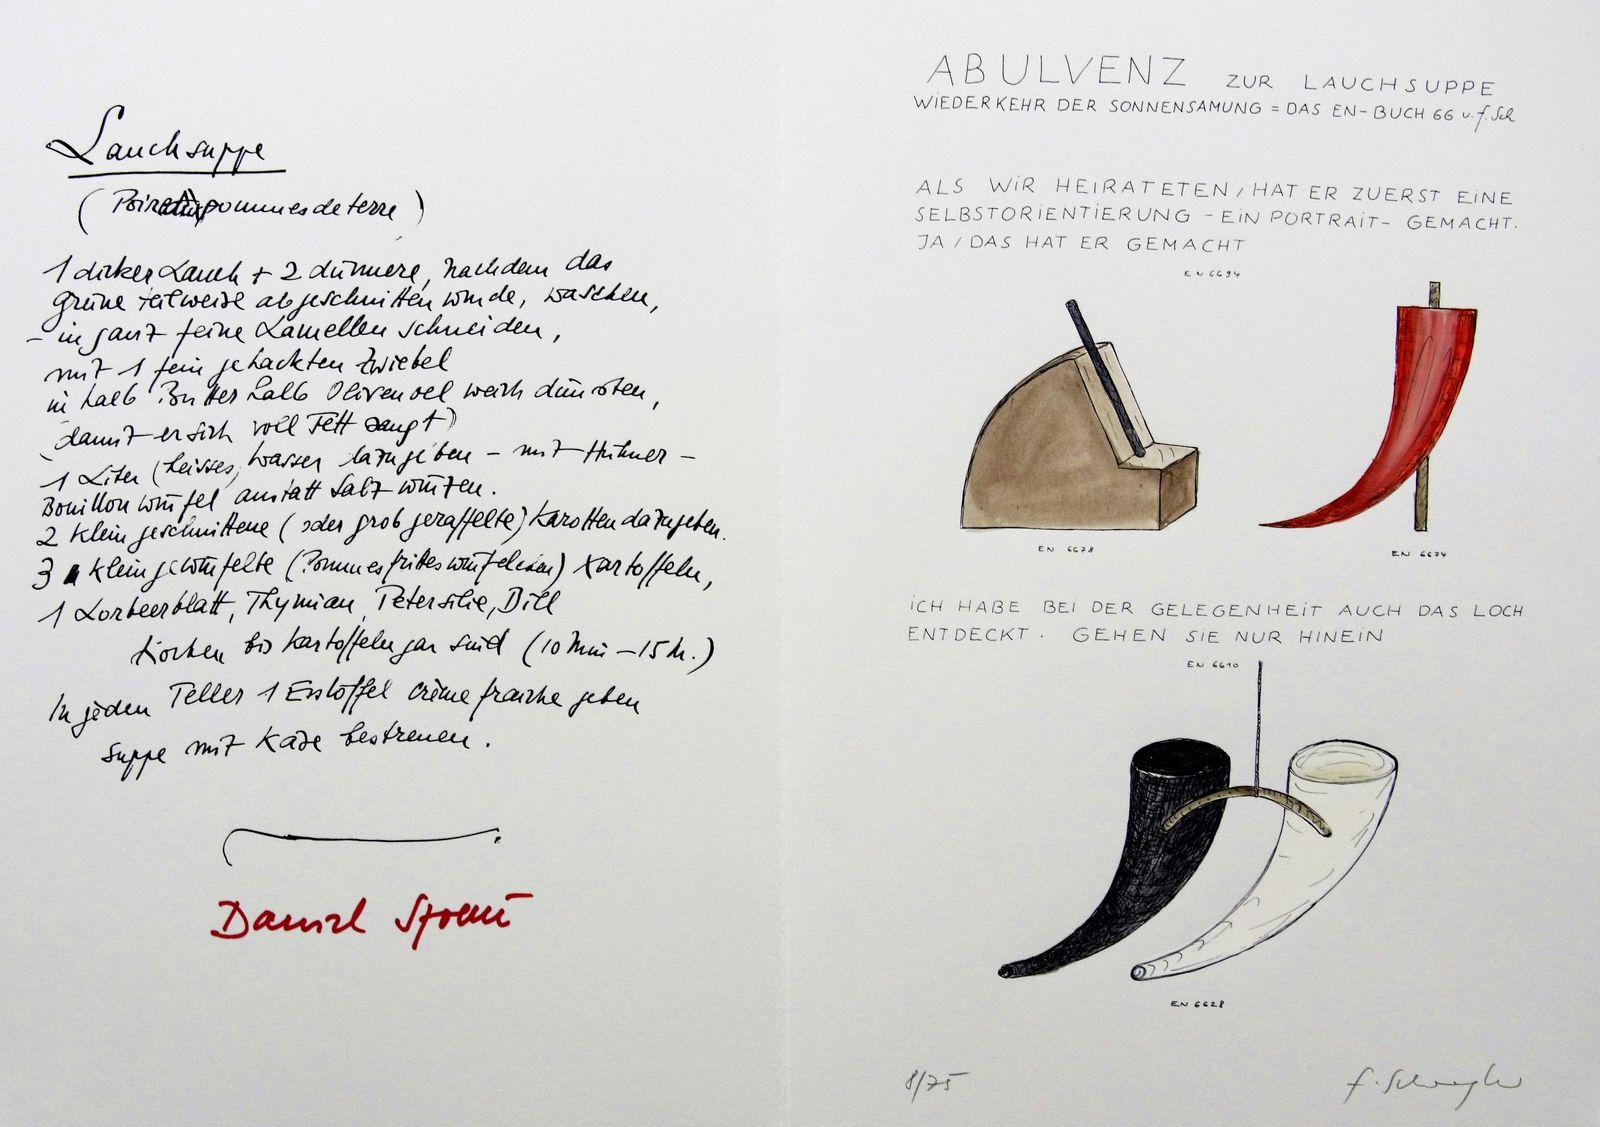 Lauchsuppe
( pommes de terre )
1 dicker Lauch + 2 dünnere, nachdem das
grüne teilweise abgeschnitten wurde, waschen,
– in ganz feine Lamellen schneiden,
mit 1 fein gehackten Zwiebel
in halb Butter halb Olivenoel weich dünsten,
(damit er sich voll Fett saugt)
1 Liter (heisses) Wasser dazugeben – mit Hühner –
Bouillonwürfel anstatt Salz würzen.
2 klein geschnittene (oder grob geraffelte) Karotten dazugeben.
3 klein gewürfelte (Pommes frites würfelchen) Kartoffeln,
1 Lorbeerblatt, Thymian, Petersilie, Dill
kochen bis Kartoffeln gar sind (10 Min – 15 M.)
In jeden Teller 1 Esslöffel crème fraiche geben
Suppe mit Käse bestreuen.
Daniel Spoerri
ABULVENZ ZUR LAUCHSUPPE
WIEDERKEHR DER SONNENSAMUNG = DAS EN-BUCH 66 u. f. Sch
ALS WIR HEIRATETEN / HAT ER ZUERST EINE
SELBSTORIENTIERUNG – EIN PORTRAIT – GEMACHT.
JA / DAS HAT ER GEMACHT
EN 6694
EN 6678
EN 6674
ICH HABE BEI DER GELEGENHEIT AUCH DAS LOCH
ENTDECKT. GEHEN SIE NUR HINEIN
EN 6610
EN 6628
8/75